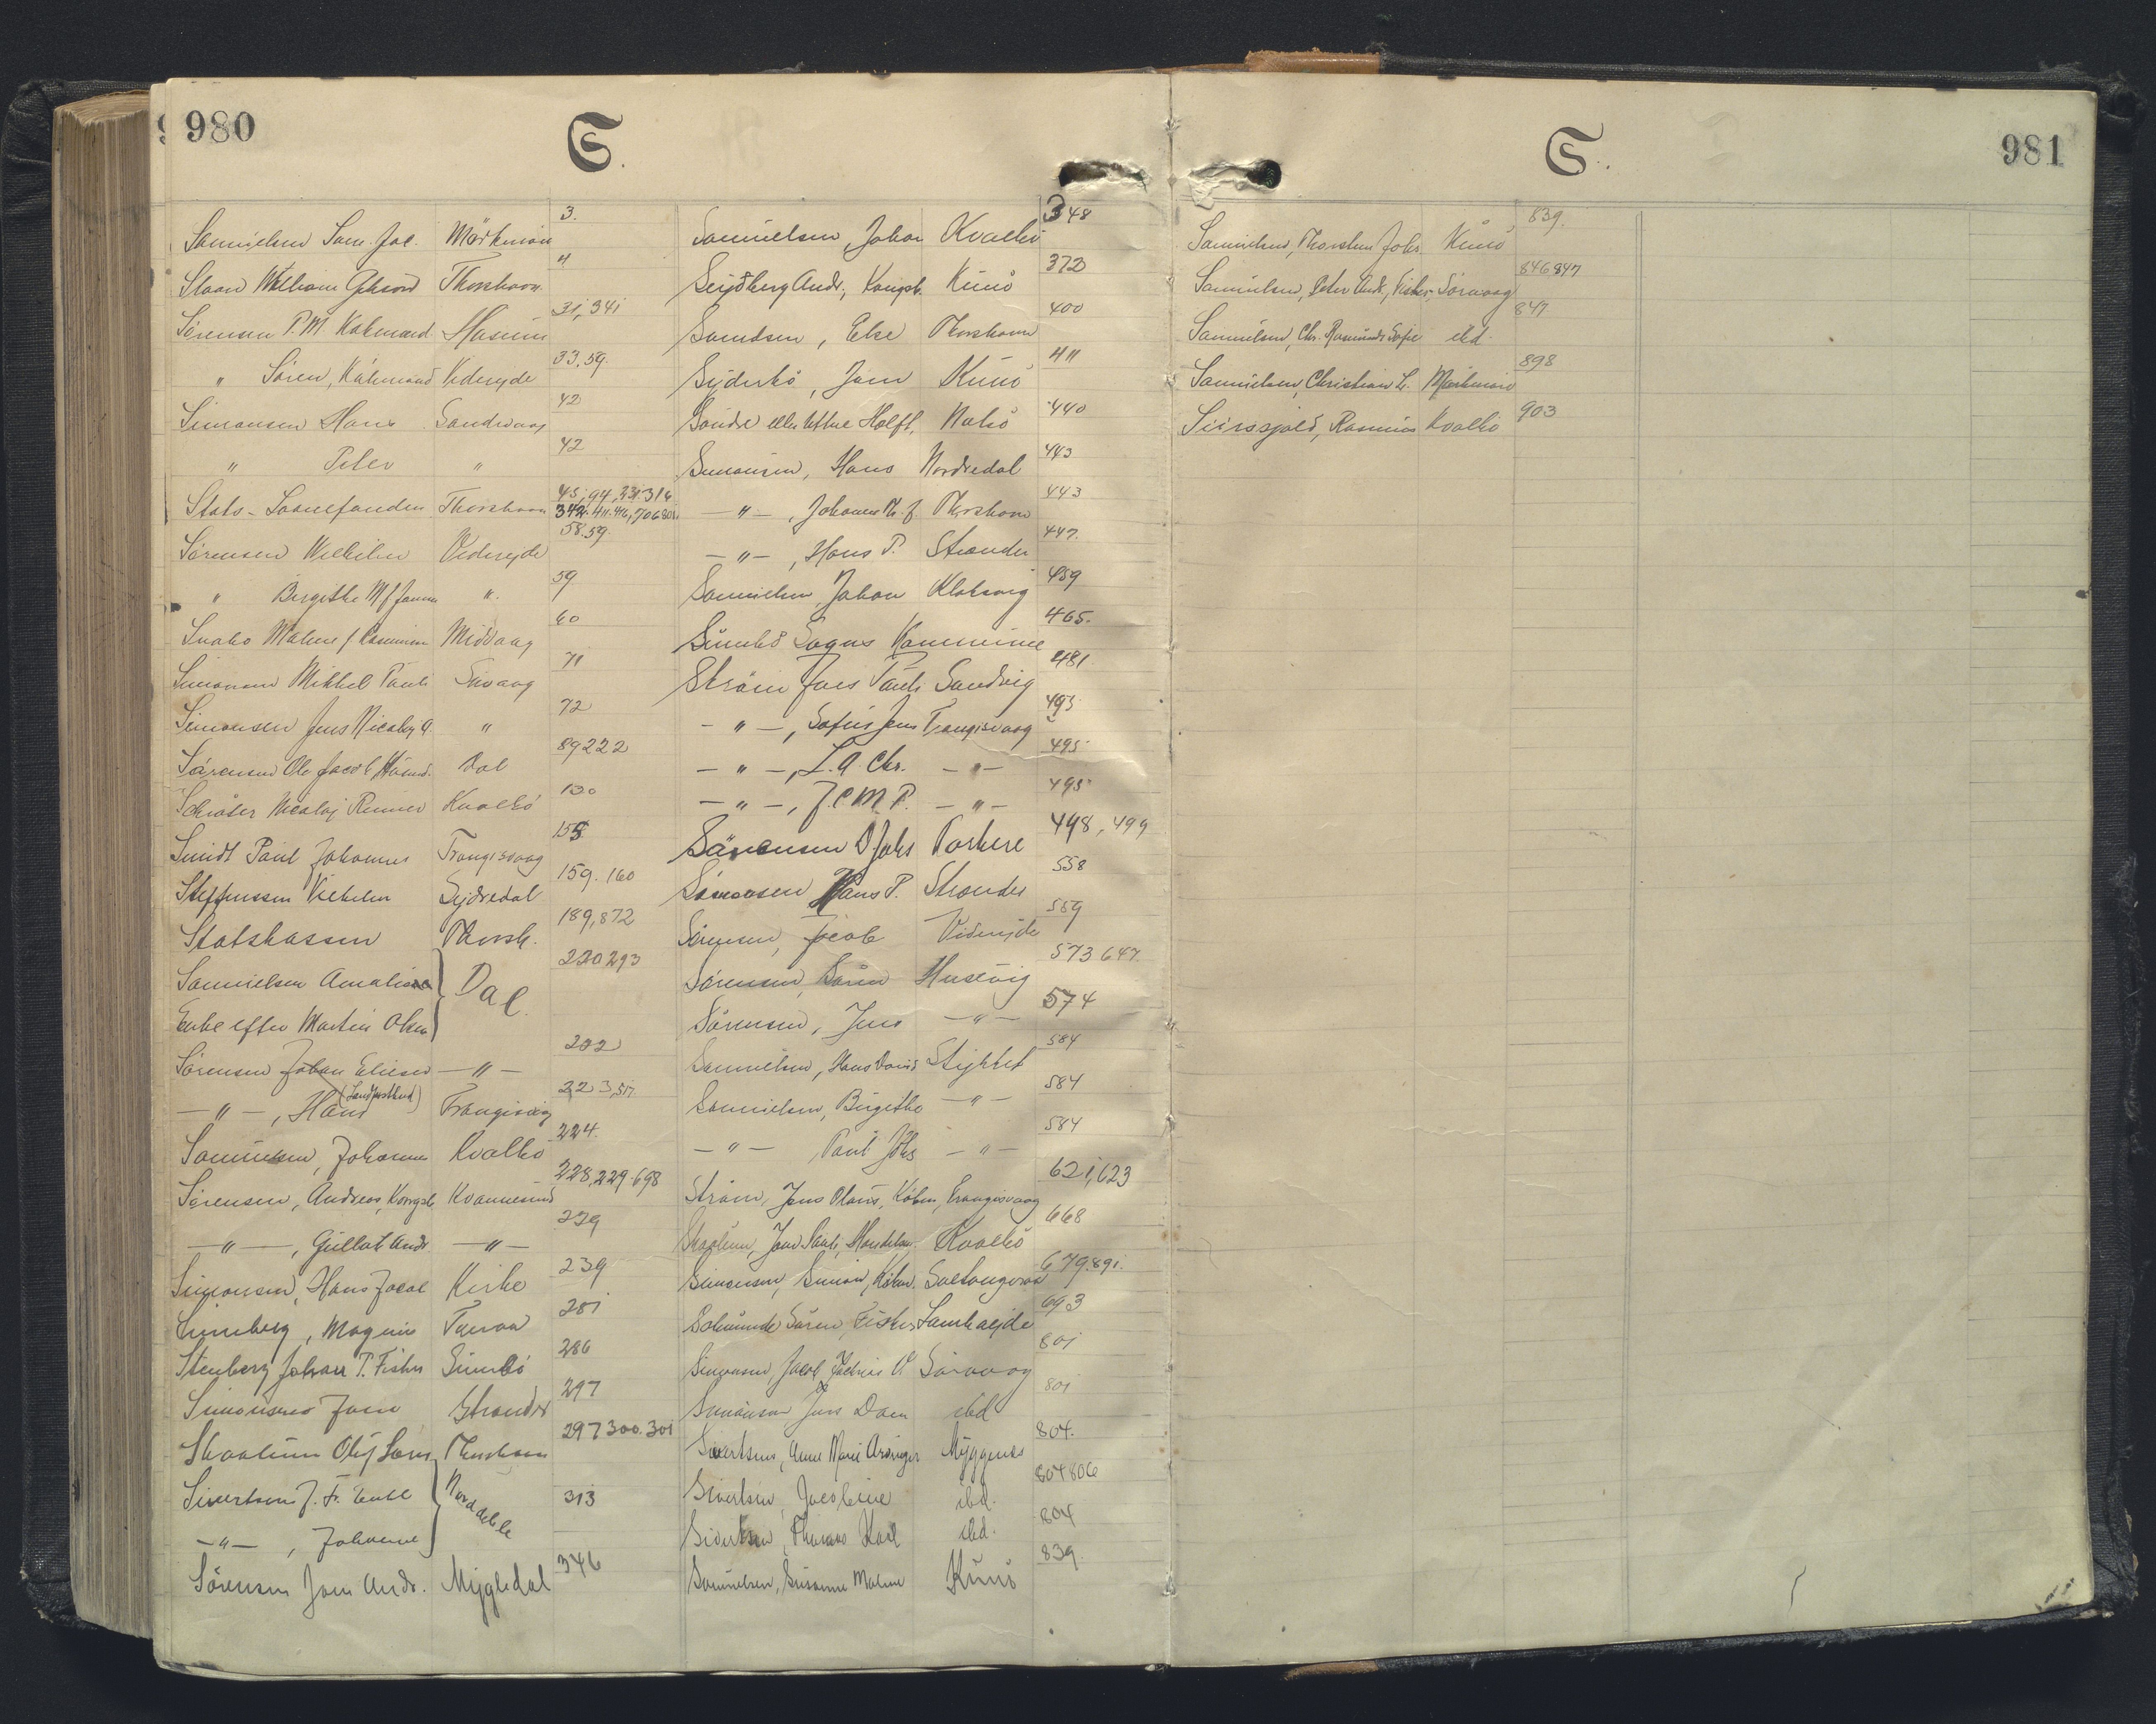 980
S.
Samuelsen Sam. Jac. Mörkmöre 3.
Sloan William Gibson Thorshavn 4
Sörensen P. M. Kobmand Husum 31, 341
" Sören, Kobmand Viderejde 33, 59.
Simonsen Hans Sandvaag 42
" Peter " 42
Stats-Laanefonden Thorshavn 45, 94, 231, 316
342. 411. 416, 706 801
Sörensen Vilhelm Viderejde 58. 59
" Birgithe M f Jansen " 59
Snabo Malene f Rasmussen Midvaag 60
Simonsen Mikkel Pauli Suvaag 71
Simonsen Jens Nicolaj A. " 72
Sörensen Ole Jacob, Husmd. Dal 89 222
Schröter Nicolaj Rener Kvalbö 130
Smidt Paul Johannes Trangisvaag 158
Steffensen Vilhelm Sydredal 159. 160
Statskassen Thorsh. 189, 872
Samuelsen Amalie Dal 220 293
Enke efter Martin Olsen
Sörensen Johan Elieser — " — 222
— " — , Hans (Landpostbud) Trangisvaag 223, 517.
Samuelsen, Johannes Kvalbö 224.
Sörensen, Andreas, Kongsb. Kvannesund 228, 229. 698
— " — , Gullak Andr. — " — 229
Simonsen, Hans Jacob Kirke 239
Sumberg, Magnus Tveraa 281
Stenberg Johan P. Fisker Sumbö 286
Simonsen Joen Strander 297
Skaalum Oluf Sam. Thorshavn 297 300. 301
Sivertsen J. Fr. Enke Norddeble 313
— " — , Johanne
Sörensen Joen Andr. Mygledal 346
Samuelsen, Johan Kvalbö 348
Sejdberg Andr., Kongsb. Kunö 372
Samdsen, Else Thorshavn 400
Syderbö, Joen Kunö 411
Söndre eller Vestre Holft. Nolsö 440
Simonsen, Hans Nordredal 443
— " — , Johannes Th. f. Thorshavn 443
— " — , Hans P. Strander 447.
Samuelsen, Johan Klaksvig 459
Sumbö Sogns Kommune 465.
Ström Jens Pauli Sandvig 481
— " — , Sofus Jens Trangisvaag 495
— " — , L. A. Chr. — " — 495
— " — , J. C. M. P. — " — 495
Sörensen D. Johs Porkere 498, 499
Simonsen Hans P. Strander 558
Sörensen, Jacob Viderejde 559
Sörensen, Sören Husevig 573 647.
Sörensen, Jens — " — 574
Samuelsen, Hans David Stykket 584
Samuelsen, Birgithe — " — 584
— " — Paul Johs — " — 584
Ström, Jens Olaus, Köbm., Trangisvaag 621, 623
Skaalum, Joen Pauli, Handelsm. Kvalbö 668
Simonsen, Simon, Köbm. Saltangeraa 679. 891.
Solmunde Sören, Fisker Lamhaejde 693
Simonsen, Jacob Joensius V. Sörvaag 801
Simonsen Jens Dam ibd 801
Sivertsen, Anne Marie Arvinger Myggenæs 804.
Sivertsen, Jacobine ibd. 804 806
Sivertsen, Thomas Karl ibd. 804
Samuelsen, Susanne Malene Kunö 839.
981
S.
Samuelsen, Thorsten Johs. Kunö 839.
Samuelsen, Peter Andr., Fisker, Sörvaag 846 847
Samuelsen, Chr. Rasmundr Sofie ibd. 847
Samuelsen, Christian L. Mörkmöre 898
Siirssjold, Rasmus Kvalbö 903